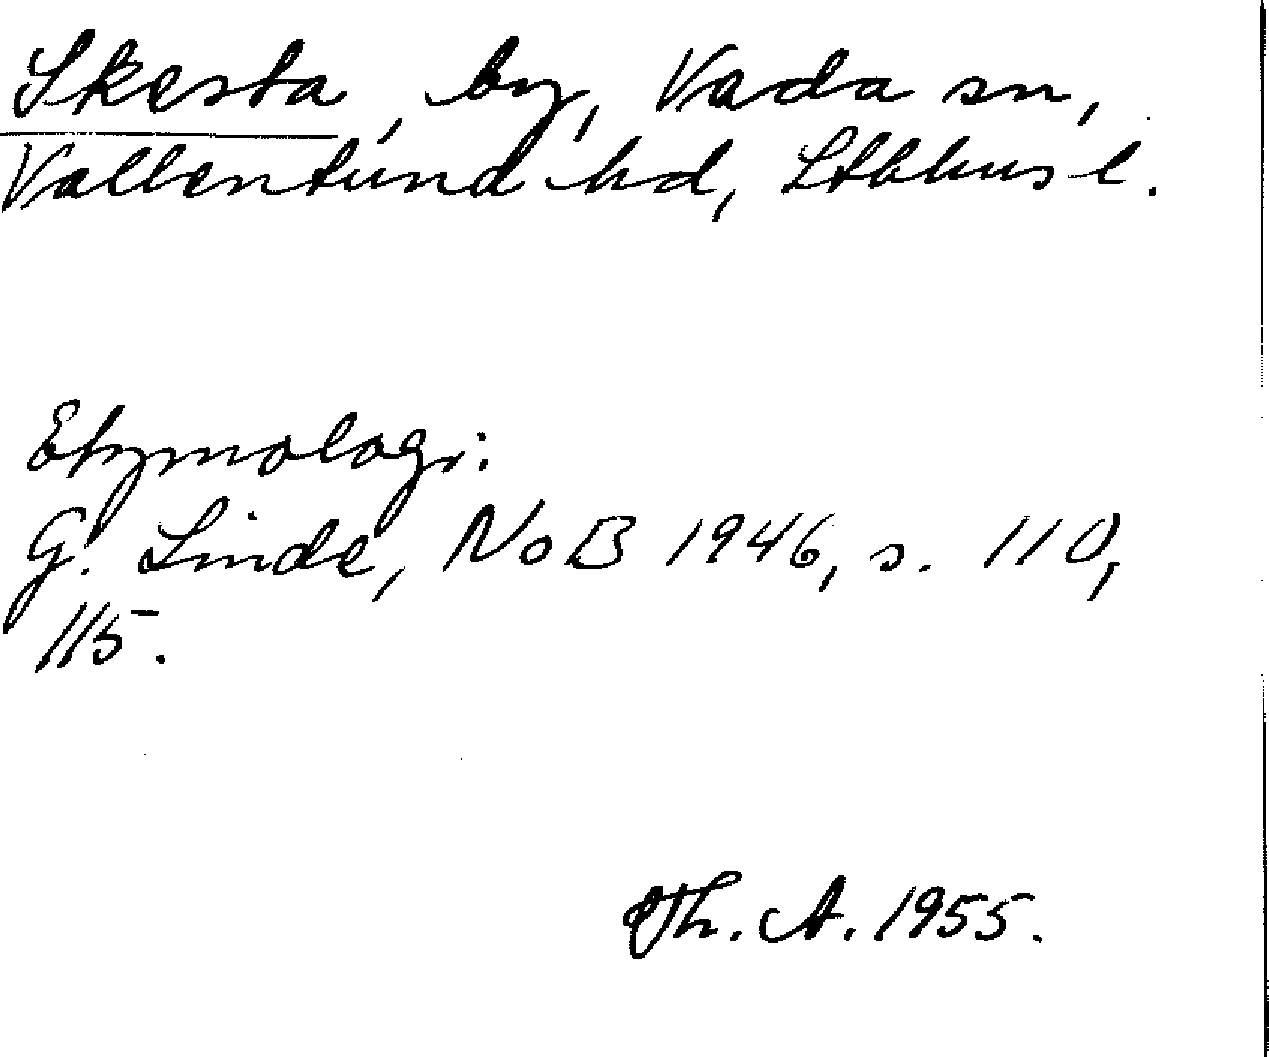 Skesta, by, Vada sn,
Vallentuna hd, Sthlms l.
Etymologi:
G. Linde, NoB 1946, s. 110,
115.
Th. A. 1955.